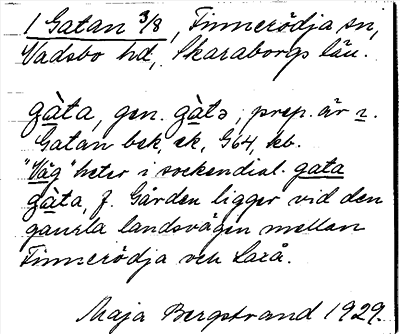 1 Gatan 3/8, Finnerödja sn,
Vadsbo hd, Skaraborgs län.
gàta, gen. gàtə; prep. är i.
Gatan bek, ek, G64, kb.
"Väg" heter i sockendial. gata
gàta, f. Gården ligger vid den
gamla landsvägen mellan
Finnerödja och Laxå.
Maja Bergstrand 1929.